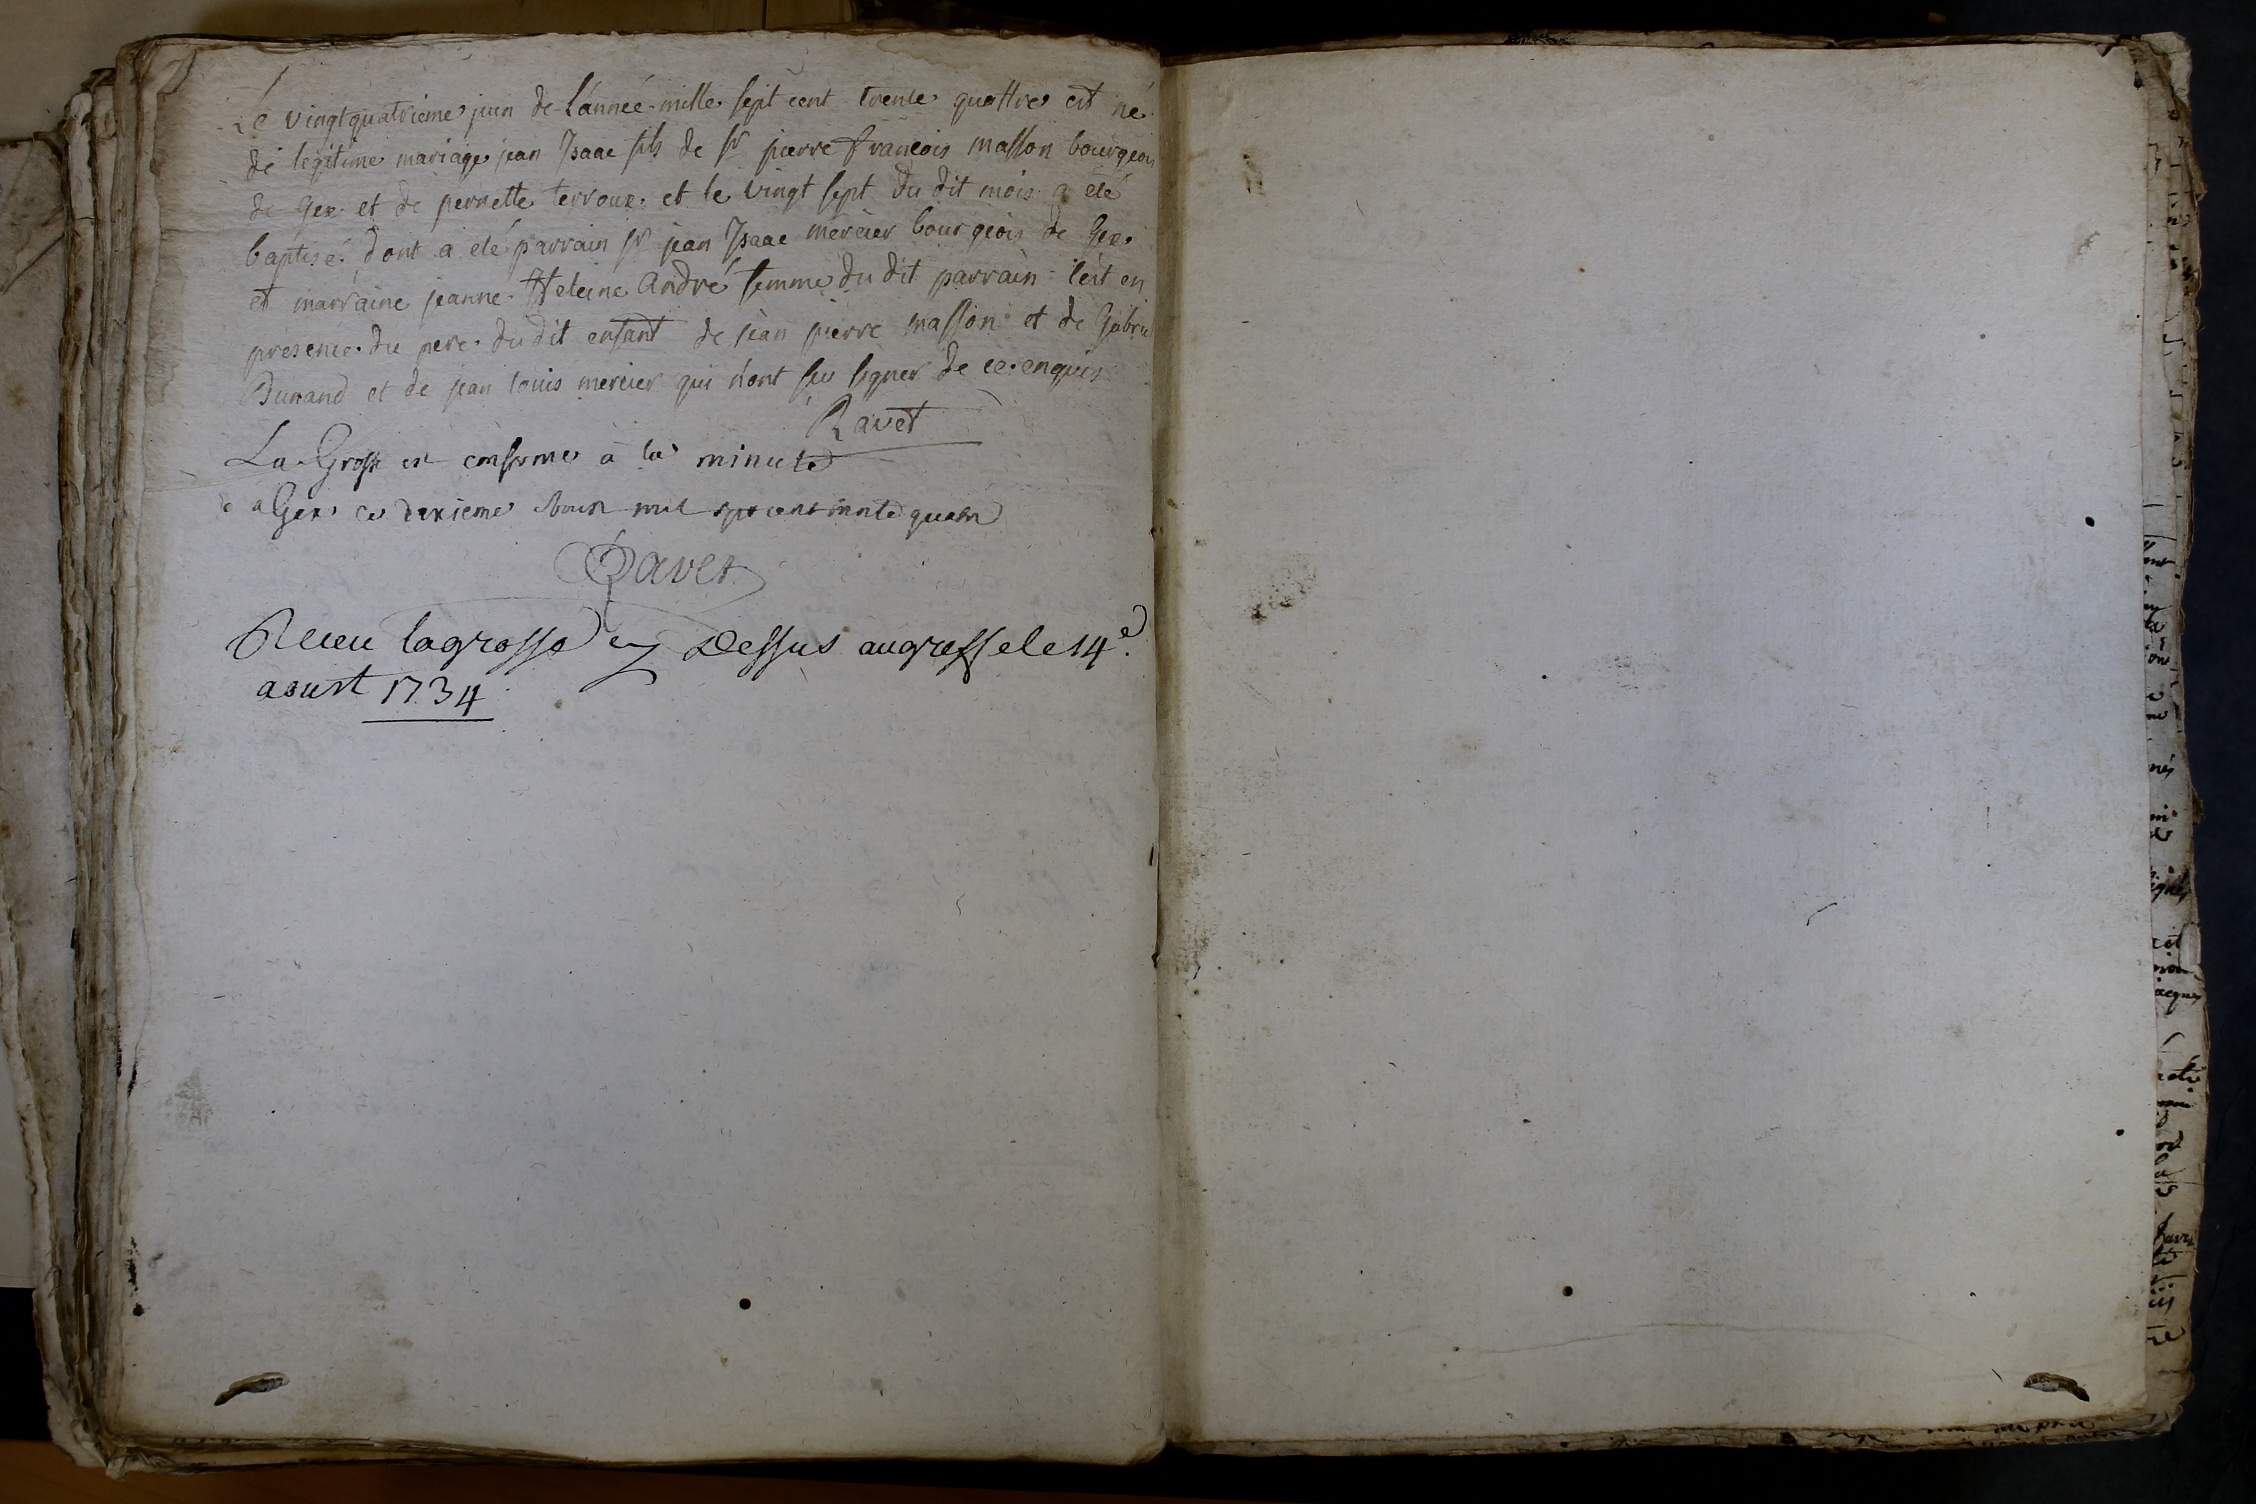 Le vingtquatrieme juin de L'année mille sept cent trente quattre est né
de legitime mariage jean Isaac fils de Sr pierre francois masson bourgeois
de gex et de pernette terroux et le vingt sept du dit mois a eté
baptisé dont a eté parrain Sr jean Isaac mercier bourgeois de Gex
et marraine jeanne Heleine André femme du dit parrain en
presence du pere du dit enfant de jean pierre masson et de Gabriel
Durand et de jean louis mercier qui n'ont seu signer de ce enquis
Ravet
La Grosse est conforme a la minute
a Gex ce dixieme mil sept cent trente quatre
Ravet
Receu lagrosse cy Dessus augreffe le 14e
aoust 1734